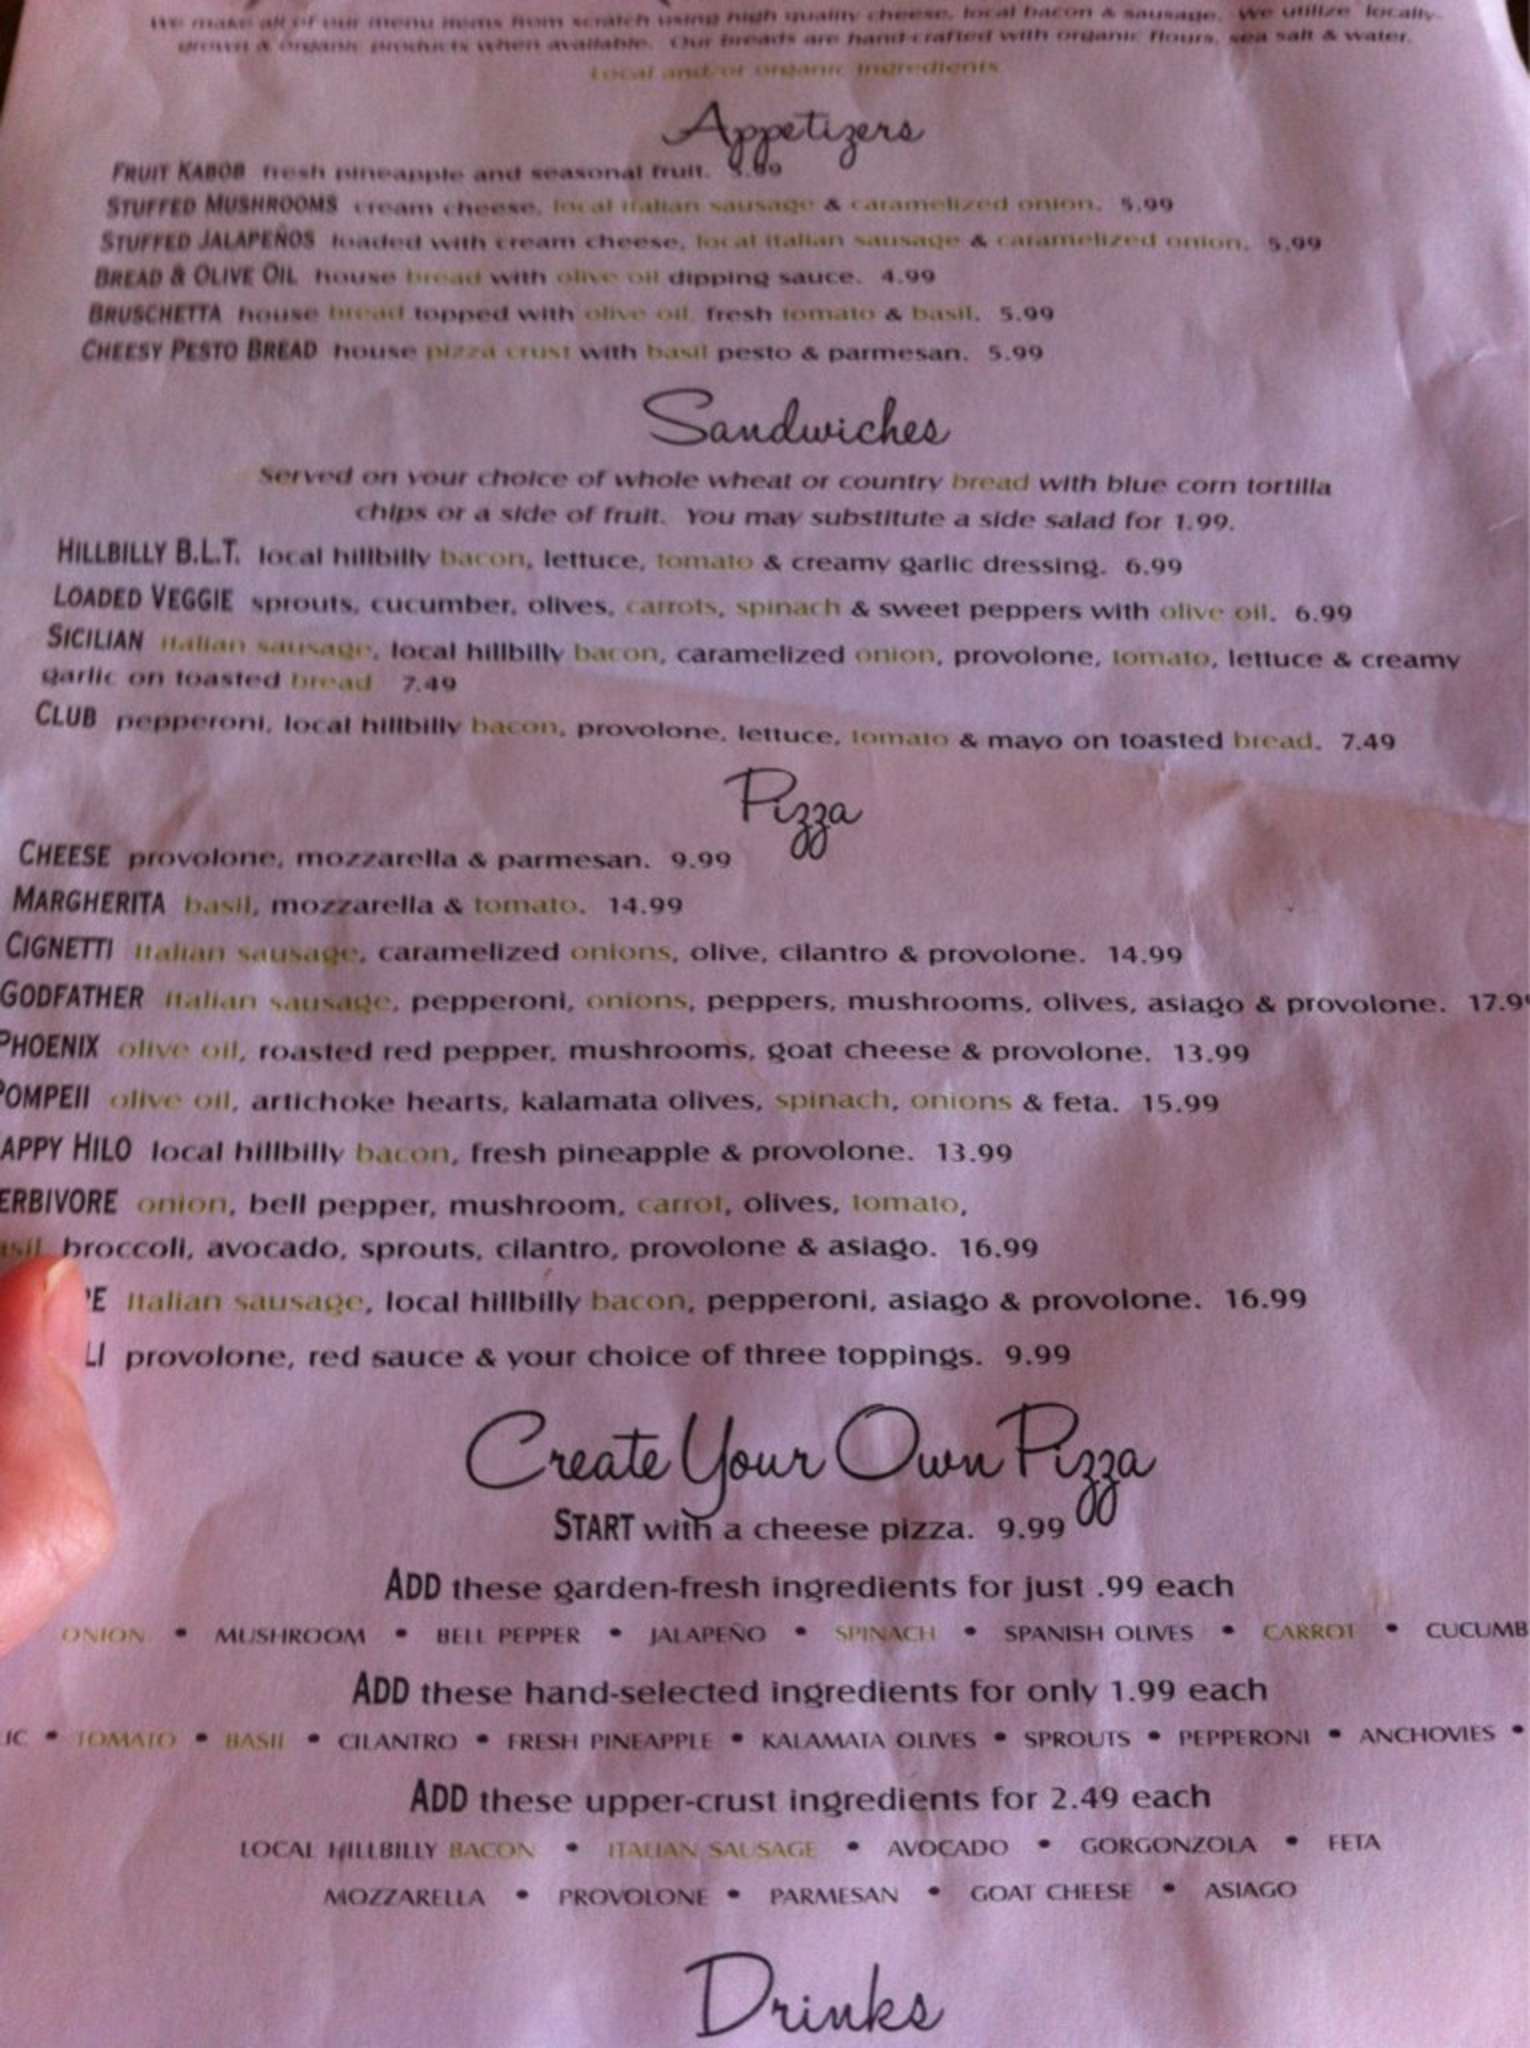 We make all of our menu items from scratch using high quality cheese, local bacon & sausage. We utilize locally-
grown & organic products when available. Our breads are hand-crafted with organic flours, sea salt & water.
Local and/or organic ingredients
Appetizers
FRUIT KABOB fresh pineapple and seasonal fruit.
STUFFED MUSHROOMS cream cheese, local italian sausage & caramelized onion. 5.99
STUFFED JALAPEÑOS loaded with cream cheese, local italian sausage & caramelized onion. 5.99
BREAD & OLIVE OIL house bread with olive oil dipping sauce. 4.99
BRUSCHETTA house bread topped with olive oil, fresh tomato & basil. 5.99
CHEESY PESTO BREAD house pizza crust with basil pesto & parmesan. 5.99
Sandwiches
Served on your choice of whole wheat or country bread with blue corn tortilla
chips or a side of fruit. You may substitute a side salad for 1.99.
HILLBILLY B.L.T. local hillbilly bacon, lettuce, tomato & creamy garlic dressing. 6.99
LOADED VEGGIE sprouts, cucumber, olives, carrots, spinach & sweet peppers with olive oil. 6.99
SICILIAN italian sausage, local hillbilly bacon, caramelized onion, provolone, tomato, lettuce & creamy
garlic on toasted bread 7.49
CLUB pepperoni, local hillbilly bacon, provolone, lettuce, tomato & mayo on toasted bread. 7.49
Pizza
CHEESE provolone, mozzarella & parmesan. 9.99
MARGHERITA basil, mozzarella & tomato. 14.99
CIGNETTI Italian sausage, caramelized onions, olive, cilantro & provolone. 14.99
GODFATHER Italian sausage, pepperoni, onions, peppers, mushrooms, olives, asiago & provolone. 17.9
PHOENIX olive oil, roasted red pepper, mushrooms, goat cheese & provolone. 13.99
POMPEII olive oil, artichoke hearts, kalamata olives, spinach, onions & feta. 15.99
APPY HILO local hillbilly bacon, fresh pineapple & provolone. 13.99
ERBIVORE onion, bell pepper, mushroom, carrot, olives, tomato,
asil broccoli, avocado, sprouts, cilantro, provolone & asiago. 16.99
PE Italian sausage, local hillbilly bacon, pepperoni, asiago & provolone. 16.99
LI provolone, red sauce & your choice of three toppings. 9.99
Create Your Own Pizza
START with a cheese pizza. 9.99
ADD these garden-fresh ingredients for just .99 each
ONION • MUSHROOM • BELL PEPPER • JALAPEÑO • SPINACH • SPANISH OLIVES • CARROT • CUCUMB
ADD these hand-selected ingredients for only 1.99 each
LIC • TOMATO • BASIL • CILANTRO • FRESH PINEAPPLE • KALAMATA OLIVES • SPROUTS • PEPPERONI • ANCHOVIES •
ADD these upper-crust ingredients for 2.49 each
LOCAL HILLBILLY BACON • ITALIAN SAUSAGE • AVOCADO • GORGONZOLA • FETA
MOZZARELLA • PROVOLONE • PARMESAN • GOAT CHEESE • ASIAGO
Drinks